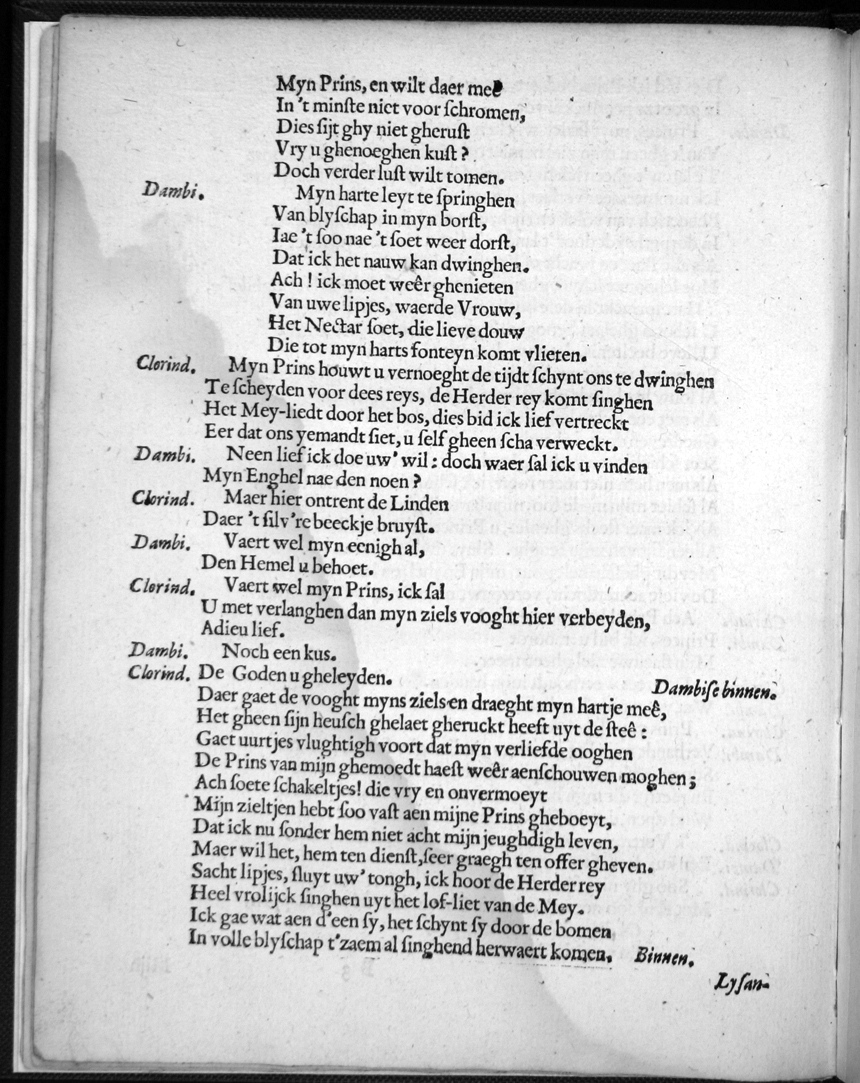 Myn Prins, en wilt daer meê
In 't minſte niet voor ſchromen,
Dies ſijt ghy niet gheruſt
Vry u ghenoeghen kuſt?
Doch verder luſt wilt tomen.
Dambi. Myn harte leyt te ſpringhen
Van blyſchap in myn borſt,
Iae 't ſoo nae 't ſoet weer dorſt,
Dat ick het nauw kan dwinghen.
Ach! ick moet weêr ghenieten
Van uwe lipjes, waerde Vrouw,
Het Nectar ſoet, die lieve douw
Die tot myn harts fonteyn komt vlieten.
Clorind. Myn Prins houwt u vernoeght de tijdt ſchynt ons te dwinghen
Te ſcheyden voor dees reys, de Herder rey komt ſinghen
Het Mey-liedt door het bos, dies bid ick lief vertreckt
Eer dat ons yemandt ſiet, u ſelf gheen ſcha verweckt.
Dambi. Neen lief ick doe uw' wil: doch waer ſal ick u vinden
Myn Enghel nae den noen?
Clorind. Maer hier ontrent de Linden
Daer 't ſilv're beeckje bruyſt.
Dambi. Vaert wel myn eenigh al,
Den Hemel u behoet.
Clorind. Vaert wel myn Prins, ick ſal
U met verlanghen dan myn ziels vooght hier verbeyden,
Adieu lief.
Dambi. Noch een kus.
Clorind. De Goden u gheleyden.
Dambiſe binnen.
Daer gaet de vooght myns ziels en draeght myn hartje meê,
Het gheen ſijn heuſch ghelaet gheruckt heeft uyt de ſteê:
Gaet uurtjes vlughtigh voort dat myn verliefde ooghen
De Prins van mijn ghemoedt haeſt weêr aenſchouwen moghen;
Ach ſoete ſchakeltjes! die vry en onvermoeyt
Mijn zieltjen hebt ſoo vaſt aen mijne Prins gheboeyt,
Dat ick nu ſonder hem niet acht mijn jeughdigh leven,
Maer wil het, hem ten dienſt, ſeer graegh ten offer gheven.
Sacht lipjes, ſluyt uw' tongh, ick hoor de Herder rey
Heel vrolijck ſinghen uyt het lof-liet van de Mey.
Ick gae wat aen d'een ſy, het ſchynt ſy door de bomen
In volle blyſchap t'zaem al ſinghend herwaert komen. Binnen.
Lyſan-